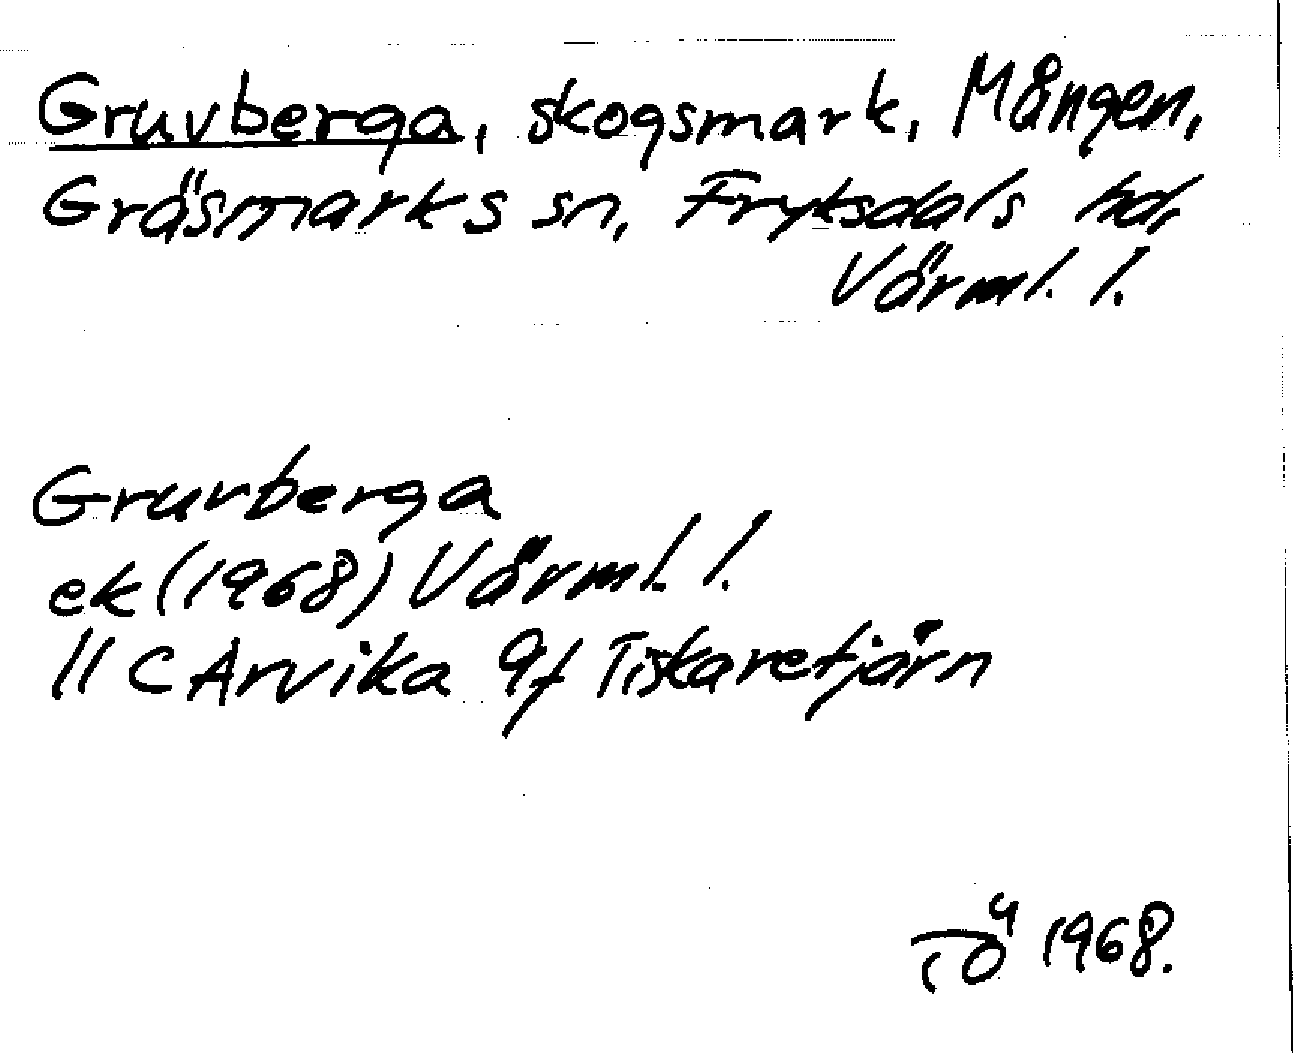 Gruvberga, skogsmark, Mången,
Gräsmarks sn, Fryksdals hd,
Värml. l.
Gruvberga
ek (1968) Värml. l.
11 C Arvika 9f Tiskaretjärn
TÖ 1968.